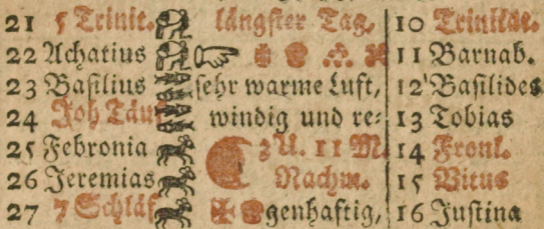 21 5 Trinit. längster Tag. 10 Trinitat.
22 Achatius 11 Barnab.
23 Basilius sehr warme Luft, 12 Basilides
24 Joh Täuf windig und re- 13 Tobias
25 Febronia 3 U. 11 M. 14 Fronl.
26 Jeremias Nachm. 15 Vitus
27 7 Schläf genhaftig, 16 Justina